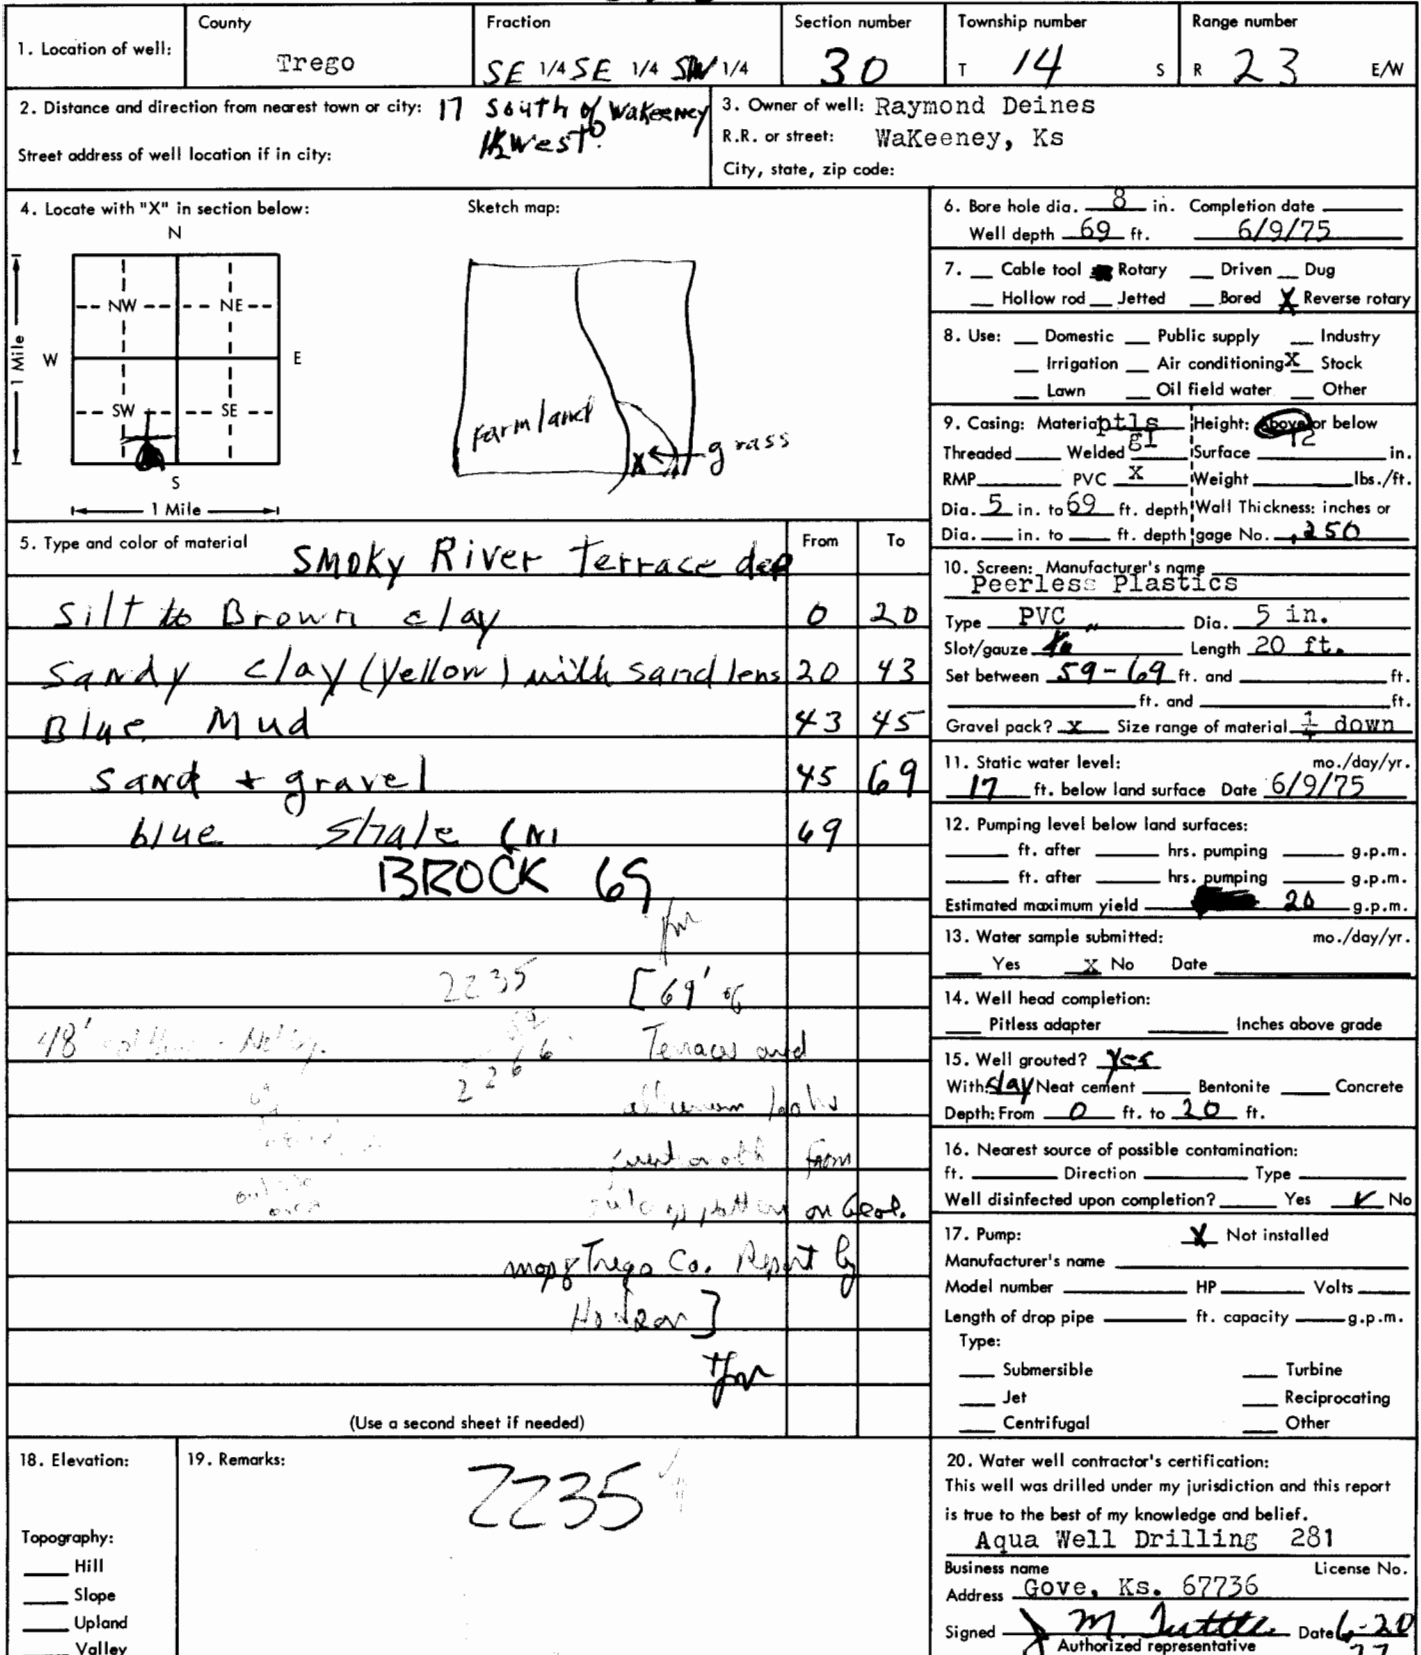 County
Fraction
Section number
Township number
Range number
1. Location of well:
Trego
SE 1/4 SE 1/4 SW 1/4
30
T 14 S
R 23 E/W
2. Distance and direction from nearest town or city: 17 South of WaKeeney
1½ West
Street address of well location if in city:
3. Owner of well: Raymond Deines
R.R. or street: WaKeeney, Ks
City, state, zip code:
4. Locate with "X" in section below:
Sketch map:
N
NW NE
W E
SW SE
S
1 Mile
1 Mile
farmland
X
grass
5. Type and color of material
From To
Smoky River Terrace dep
Silt to Brown clay 0 20
Sandy clay (yellow) with sand lens 20 43
Blue Mud 43 45
sand + gravel 45 69
blue shale (NI 69
BROCK 69
2235 [69' of
48'
Terraces and
226
from
outside
area
on Geol.
map of Trego Co. Report by
Hodson]
(Use a second sheet if needed)
6. Bore hole dia. 8 in. Completion date
Well depth 69 ft. 6/9/75
7. Cable tool Rotary Driven Dug
Hollow rod Jetted Bored X Reverse rotary
8. Use: Domestic Public supply Industry
Irrigation Air conditioning X Stock
Lawn Oil field water Other
9. Casing: Material ptls Height: Above or below
Threaded Welded gl Surface 12 in.
RMP PVC X Weight lbs./ft.
Dia. 5 in. to 69 ft. depth Wall Thickness: inches or
Dia. in. to ft. depth gage No. .250
10. Screen: Manufacturer's name
Peerless Plastics
Type PVC Dia. 5 in.
Slot/gauze Length 20 ft.
Set between 59-69 ft. and ft.
ft. and ft.
Gravel pack? X Size range of material 1/4 down
11. Static water level: mo./day/yr.
17 ft. below land surface Date 6/9/75
12. Pumping level below land surfaces:
ft. after hrs. pumping g.p.m.
ft. after hrs. pumping g.p.m.
Estimated maximum yield 20 g.p.m.
13. Water sample submitted: mo./day/yr.
Yes X No Date
14. Well head completion:
Pitless adapter Inches above grade
15. Well grouted? Yes
With: clay Neat cement Bentonite Concrete
Depth: From 0 ft. to 20 ft.
16. Nearest source of possible contamination:
ft. Direction Type
Well disinfected upon completion? Yes ✓ No
17. Pump: X Not installed
Manufacturer's name
Model number HP Volts
Length of drop pipe ft. capacity g.p.m.
Type:
Submersible Turbine
Jet Reciprocating
Centrifugal Other
18. Elevation:
Topography:
Hill
Slope
Upland
Valley
19. Remarks:
2235
20. Water well contractor's certification:
This well was drilled under my jurisdiction and this report
is true to the best of my knowledge and belief.
Aqua Well Drilling 281
Business name License No.
Address Gove, Ks. 67736
Signed M. Tuttle Date 6-20
Authorized representative